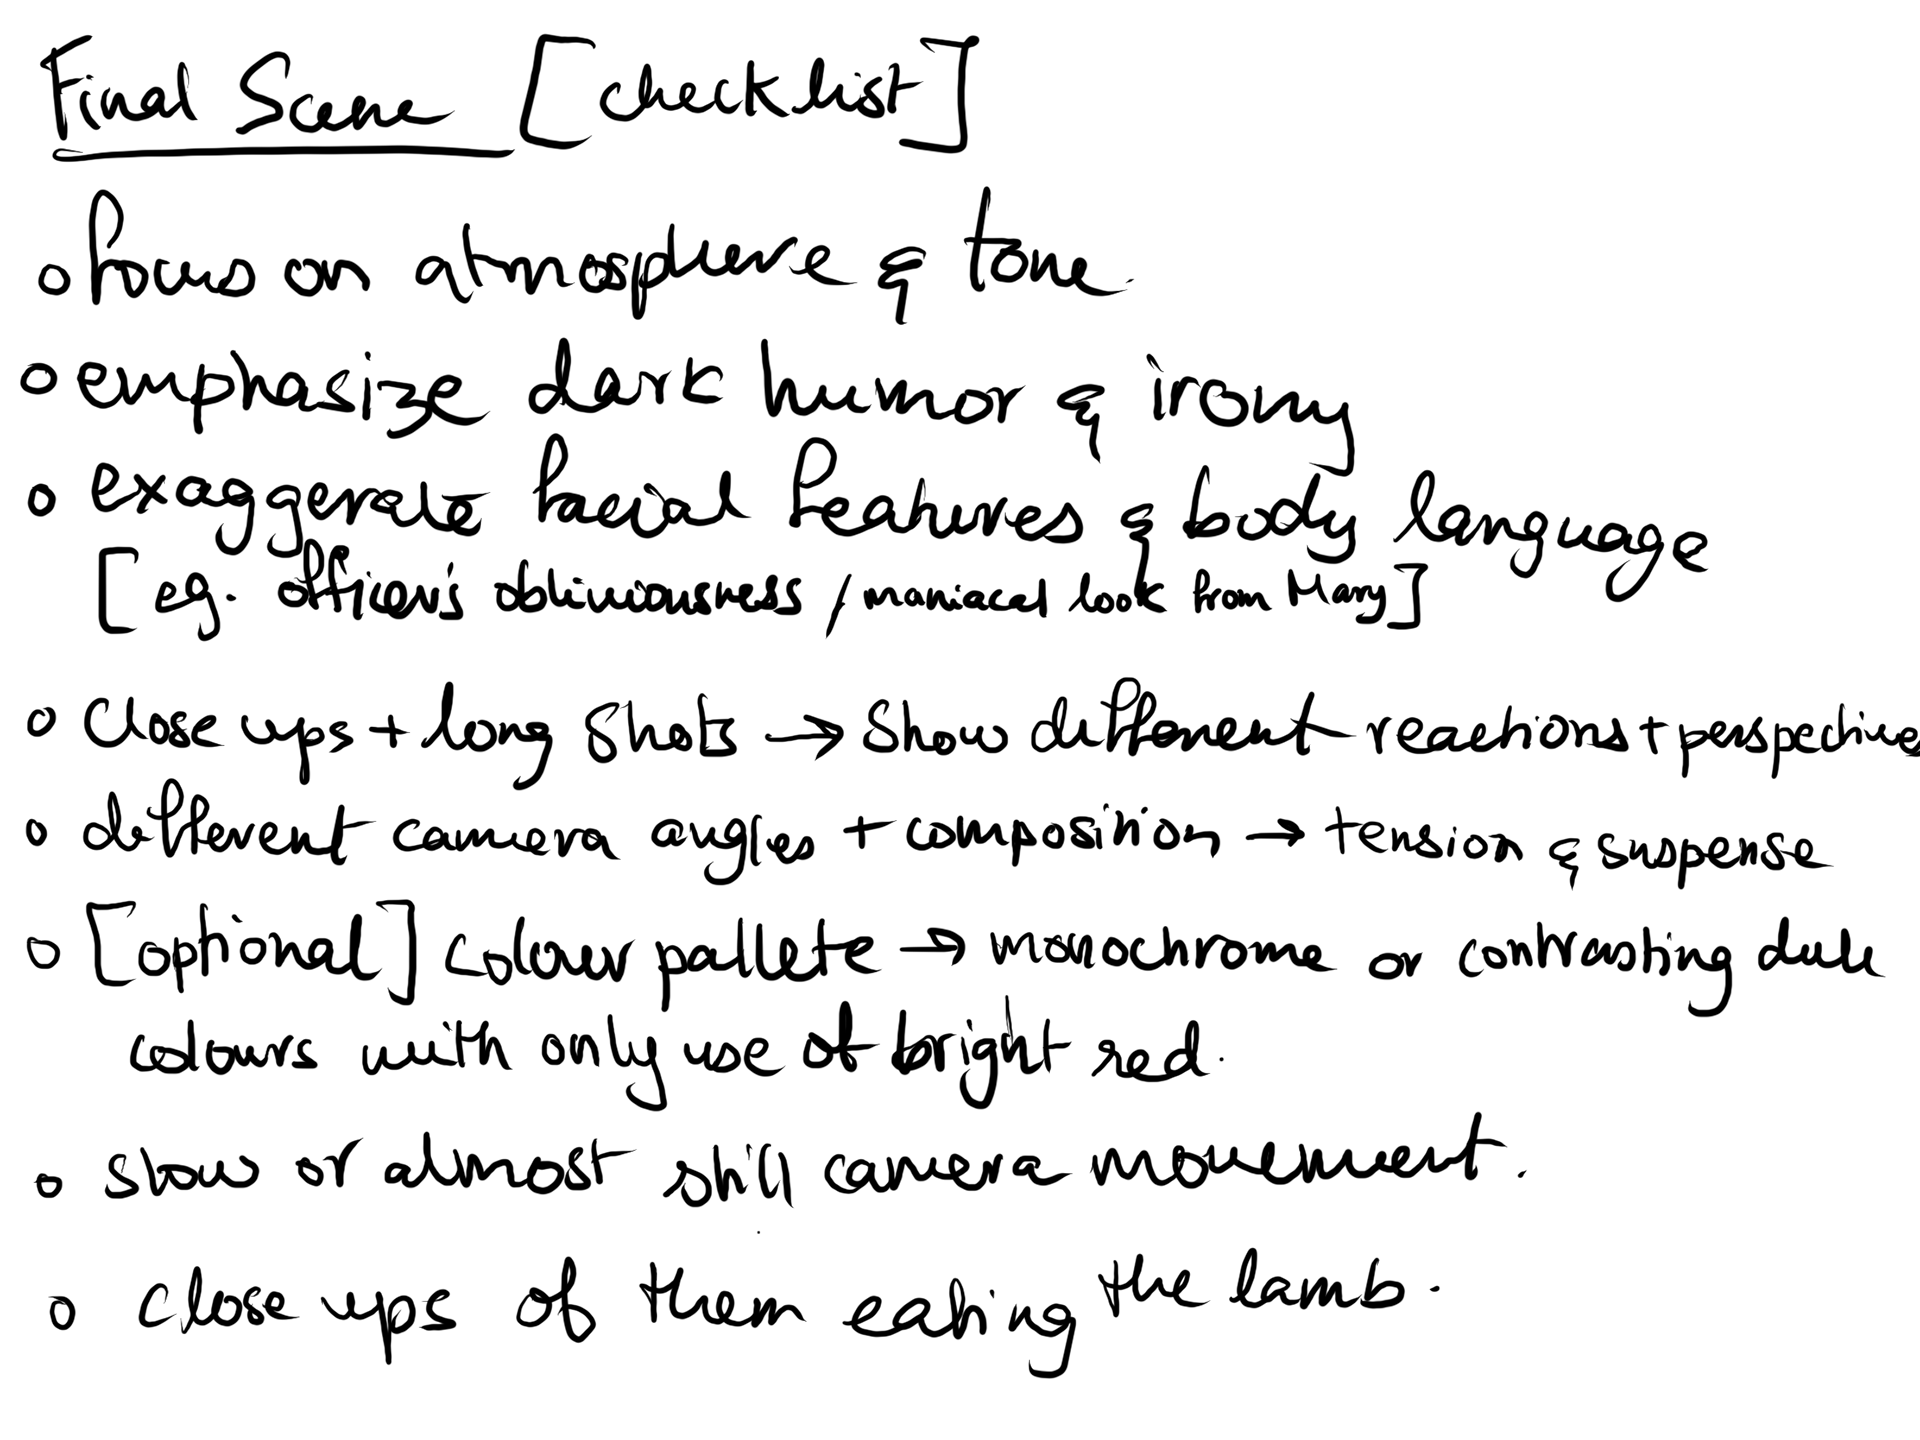 Final Scene [checklist]
o focus on atmosphere & tone.
o emphasize dark humor & irony
o exaggerate facial features & body language
[eg. officer's obliviousness / maniacal look from Mary]
o Close ups + long shots → Show different reactions + perspective
o different camera angles + composition → tension & suspense
o [optional] colour pallete → monochrome or contrasting dull
colours with only use of bright red.
o slow or almost still camera movement.
o close ups of them eating the lamb.